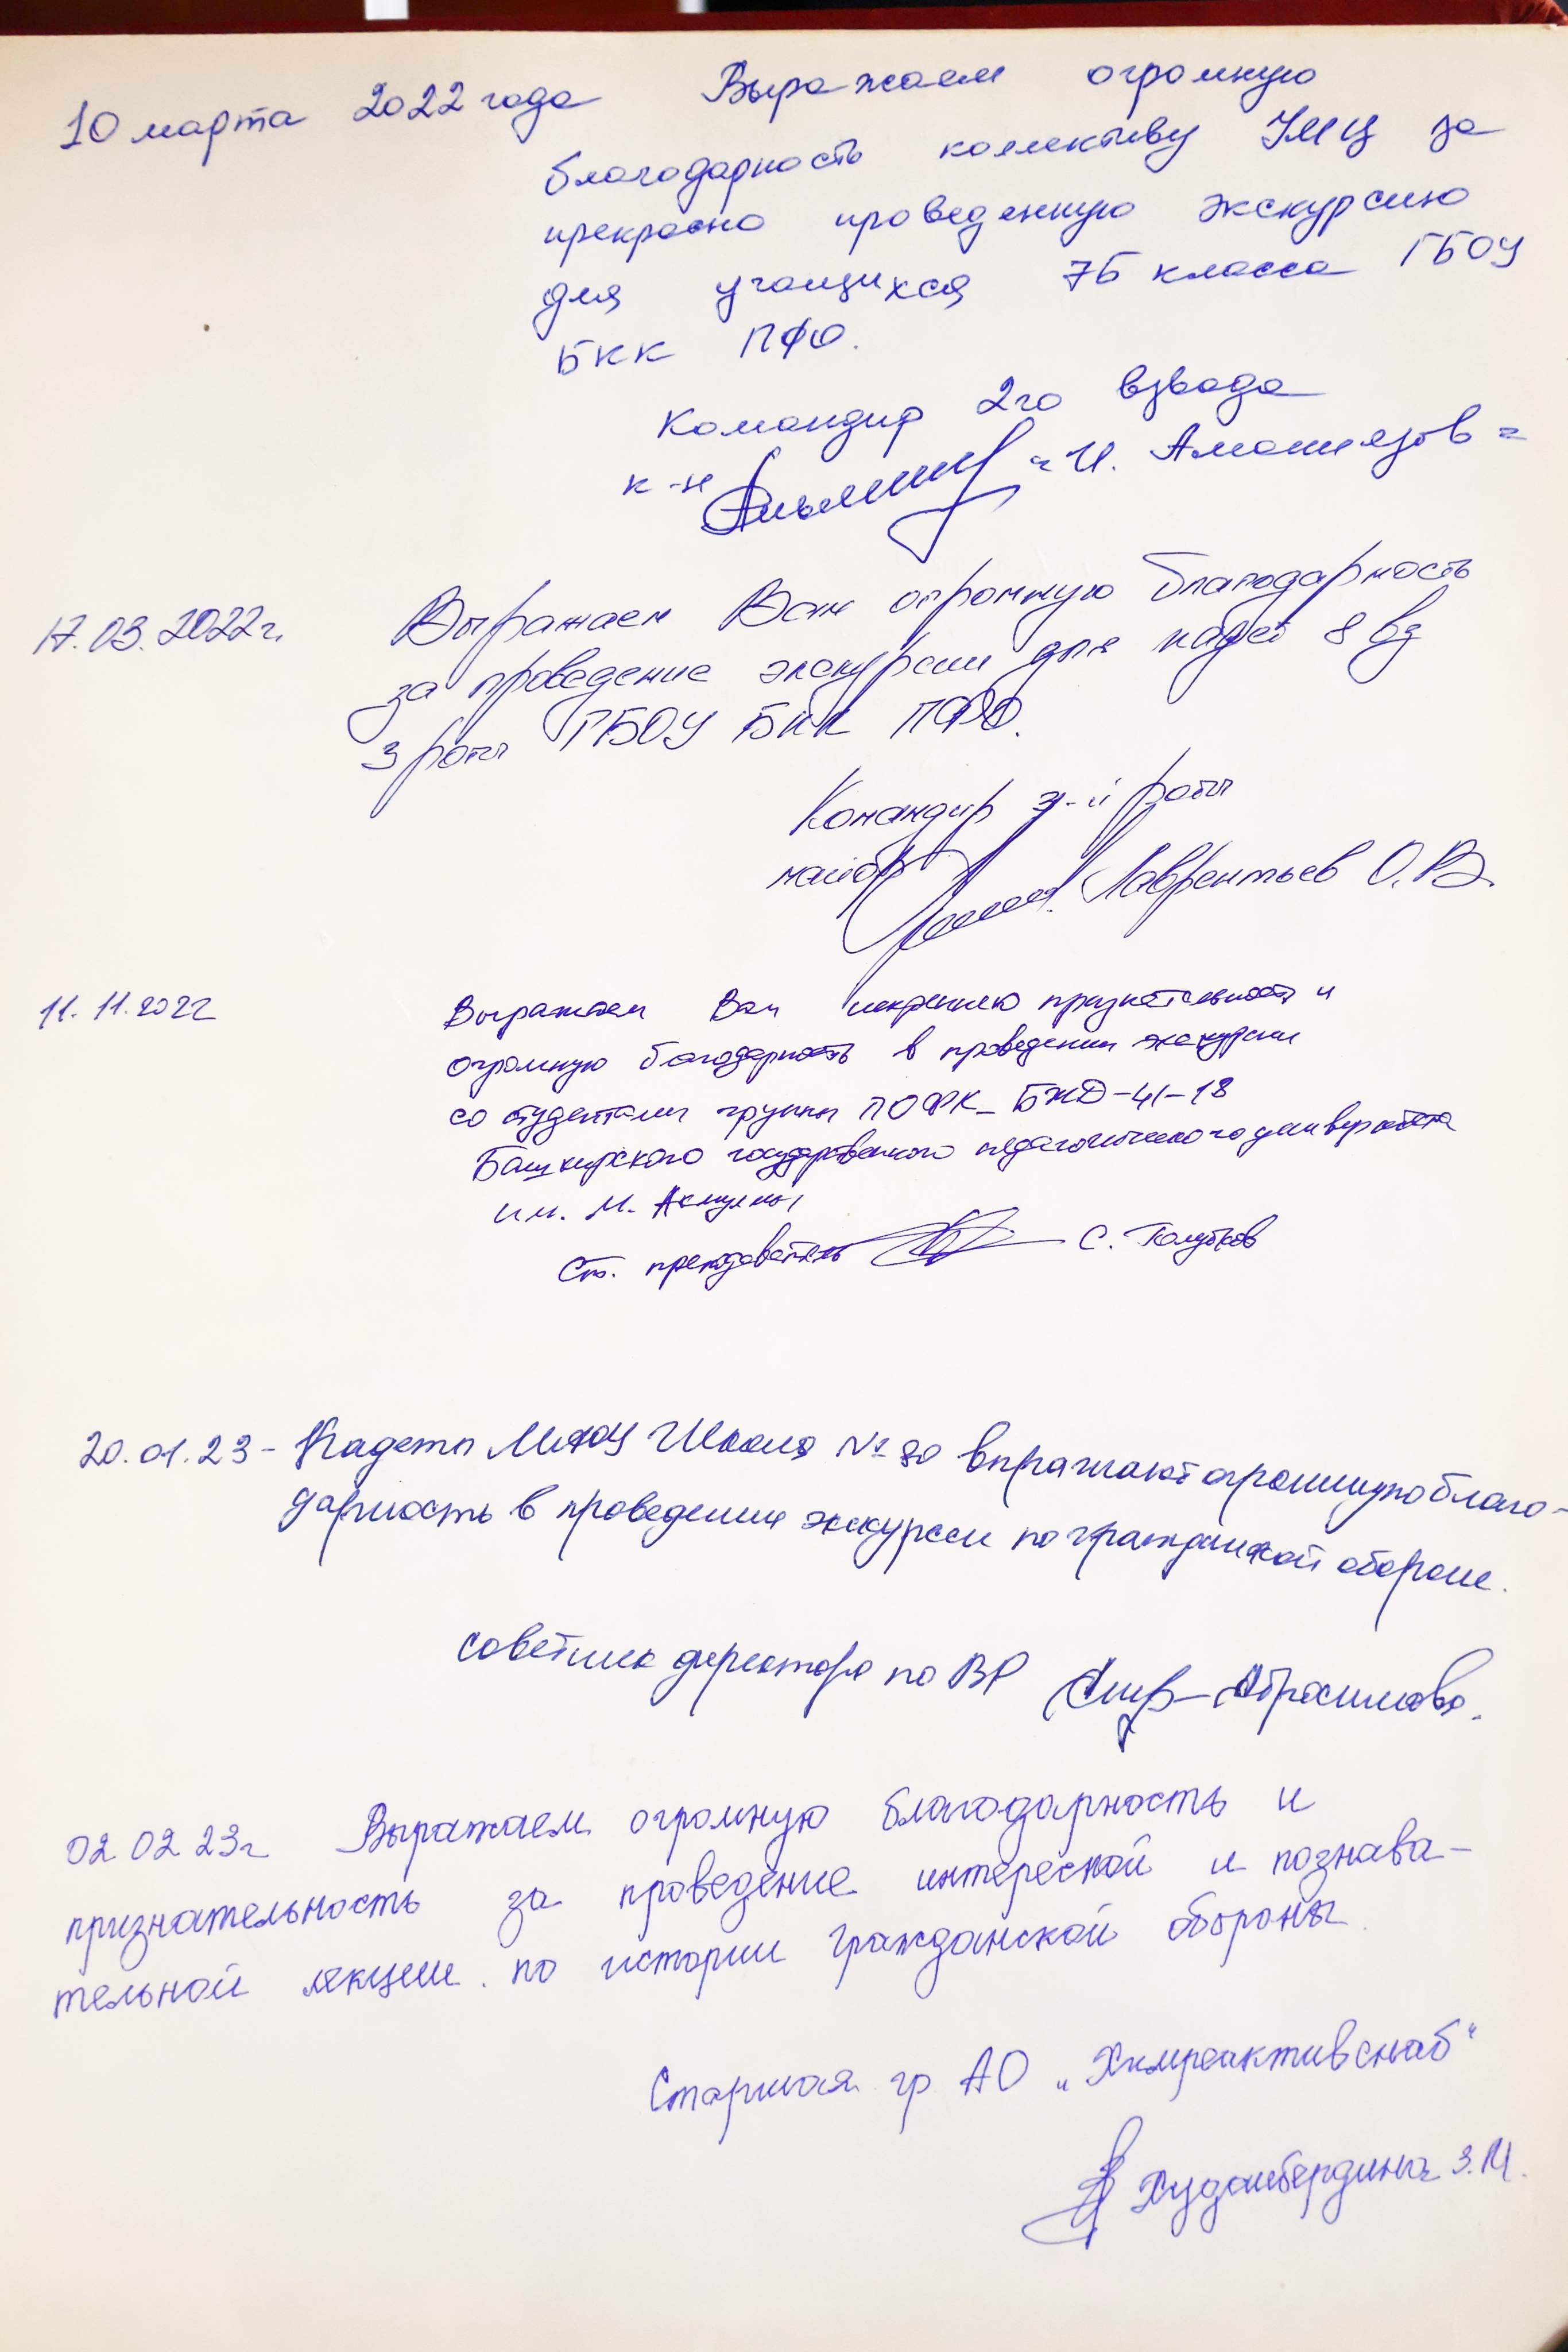 10 марта 2022 года Выражаем огромную
благодарность коллективу УМЦ за
прекрасно проведенную экскурсию
для учащихся 7Б класса ГБОУ
БКК ПФО.
Командир 2го взвода
к-н И. Аманиязов
17.03.2022г. Выражаем Вам огромную благодарность
за проведение экскурсии для кадет 8 вз
3 роты ГБОУ БКК ПФО.
Командир 3-й роты
майор Лаврентьев О.В.
11.11.2022 Выражаем Вам искреннюю признательность и
огромную благодарность в проведении экскурсии
со студентами группы ПОФК_БЖД-41-18
Башкирского государственного педагогического университета
им. М. Акмуллы
Ст. преподаватель С. Голубков
20.01.23 - Кадеты МАОУ Школа № 80 выражают огромную благо-
дарность в проведении экскурсии по гражданской обороне.
советник директора по ВР Абрасимова.
02 02 23г Выражаем огромную благодарность и
признательность за проведение интересной и познава-
тельной лекции по истории гражданской обороны
Старшая гр АО „Химреактивснаб“
Худайбердина З.М.